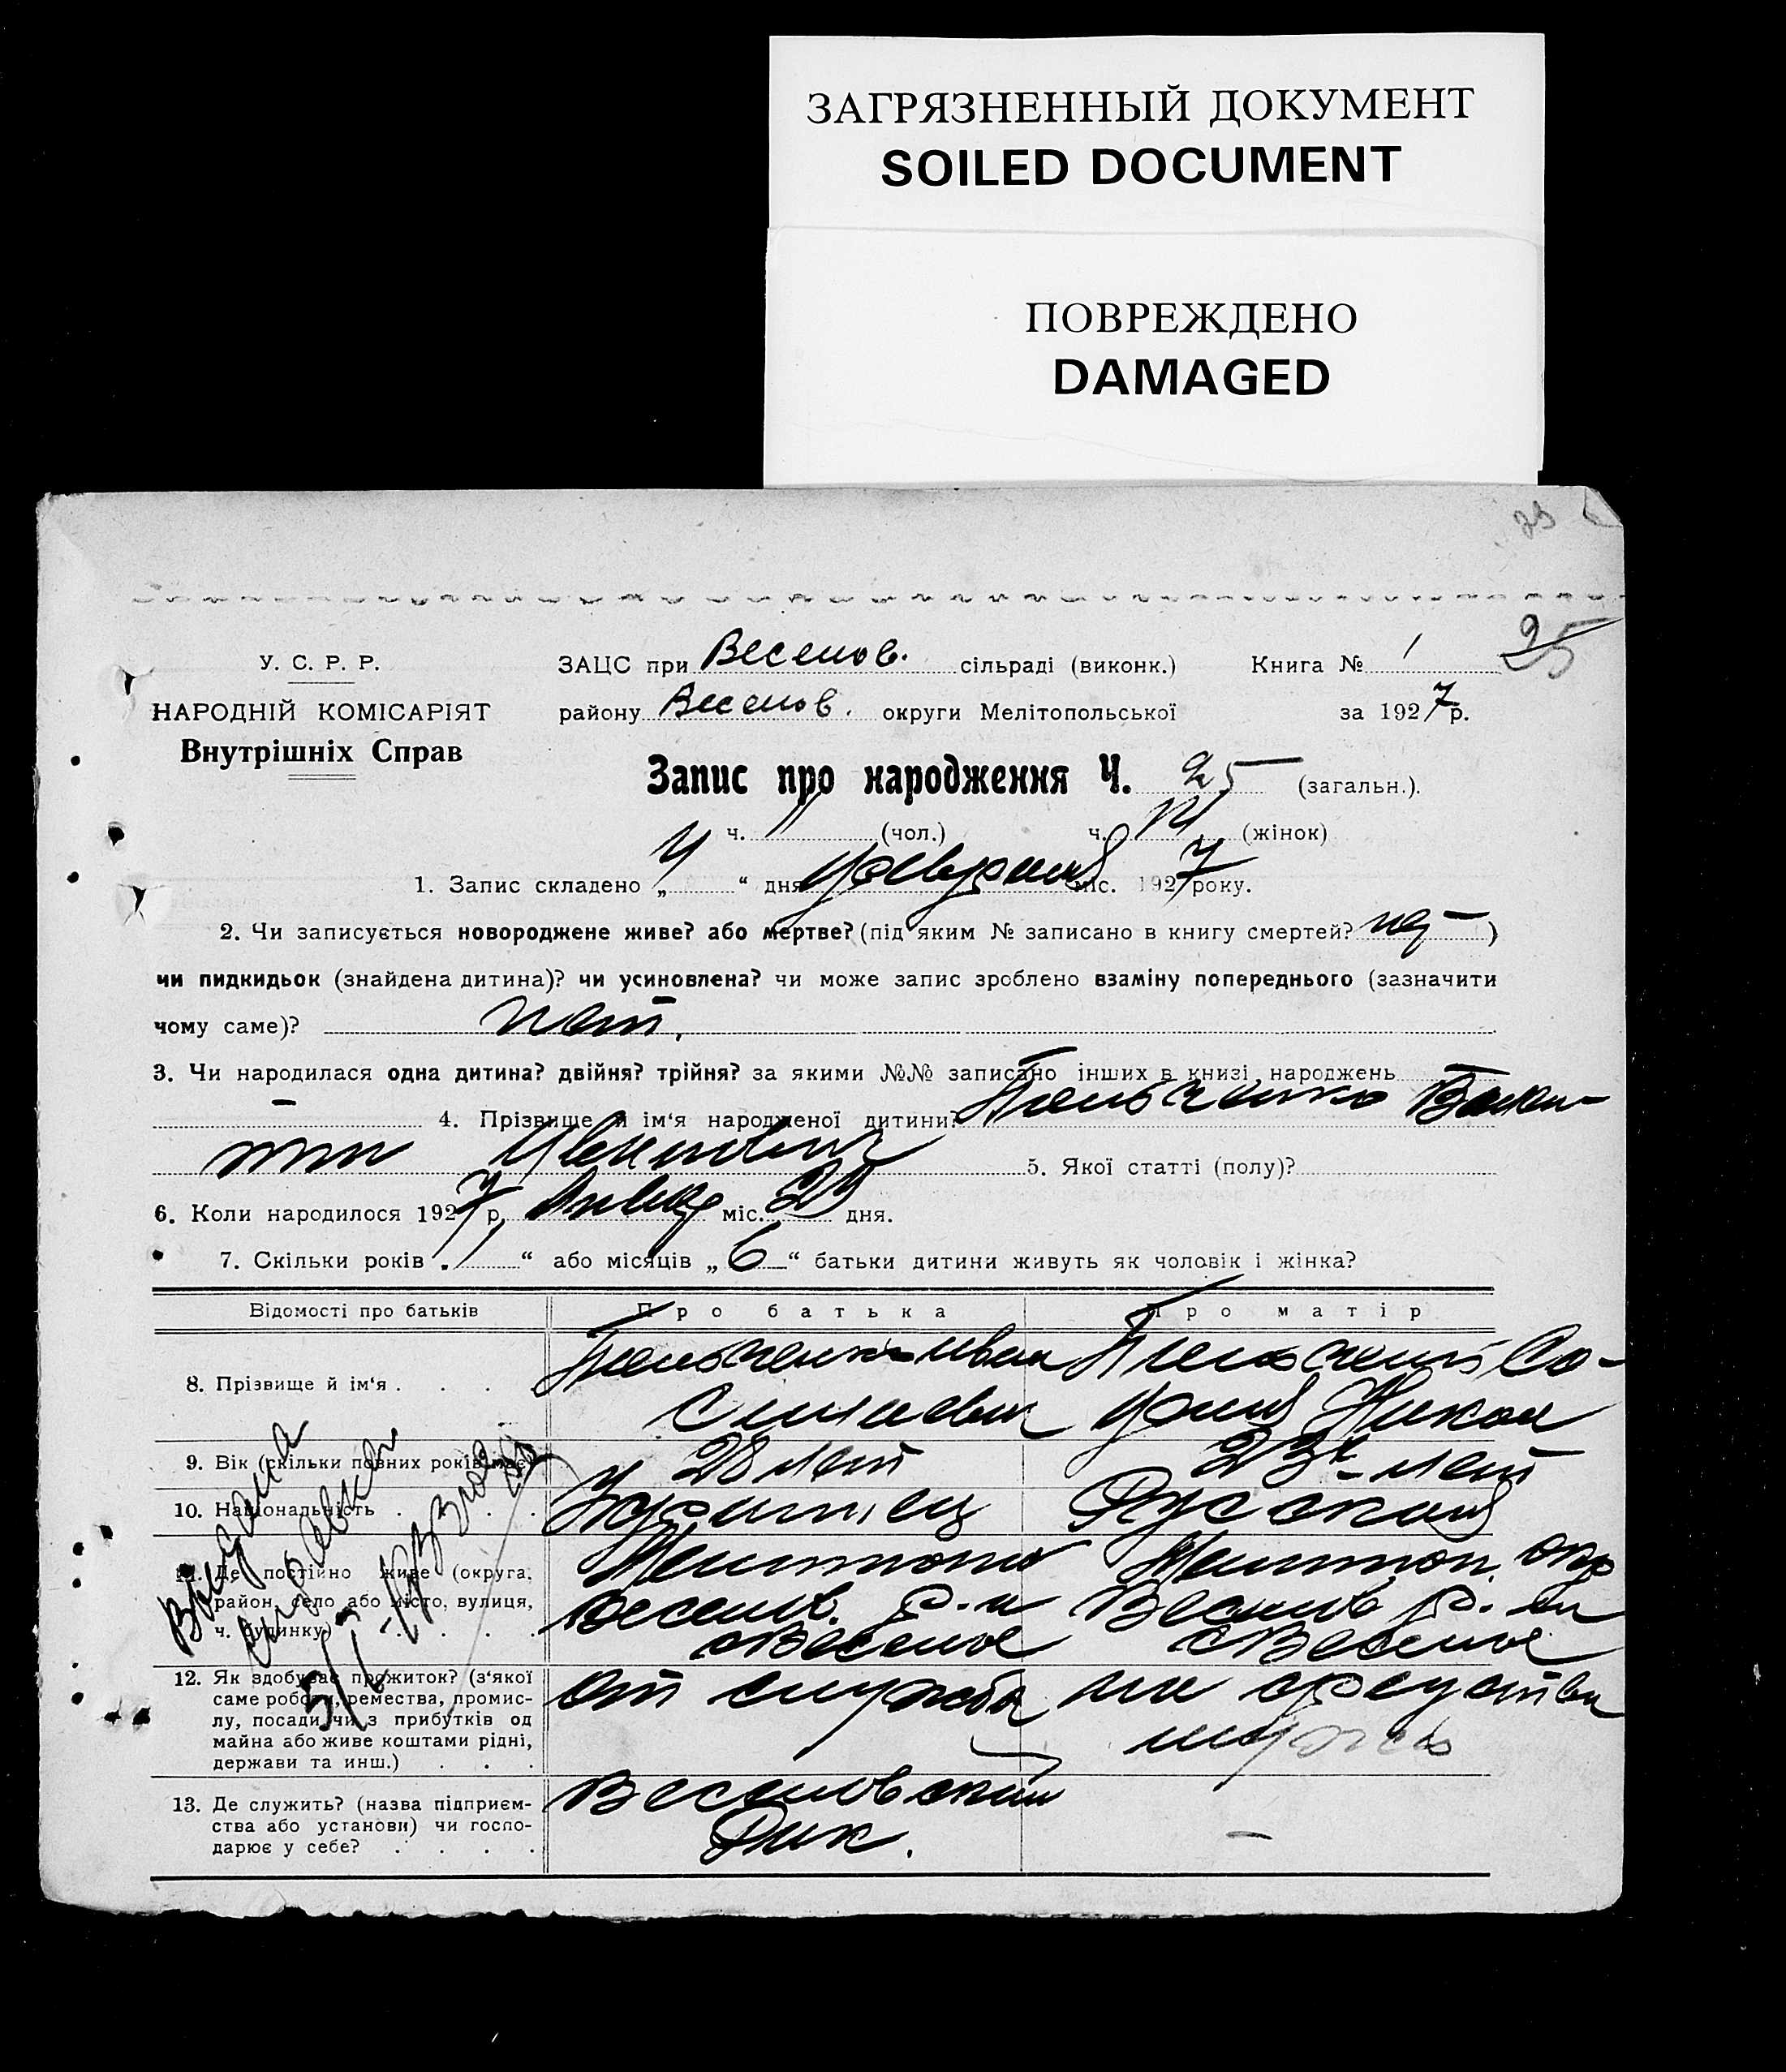 ЗАГРЯЗНЕННЫЙ ДОКУМЕНТ
SOILED DOCUMENT
ПОВРЕЖДЕНО
DAMAGED
25
У. С. Р. Р.
НАРОДНІЙ КОМІСАРІЯТ
Внутрішніх Справ
ЗАЦС при Веселов. сільраді (виконк.) Книга № 1
району Веселов. округи Мелітопольської за 1927 р.
Запис про народження Ч. 25 (загальн.).
ч. 11 (чол.) ч. 14 (жінок)
1. Запис складено „ 4 “ дня февраля міс. 1927 року.
2. Чи записується новороджене живе? або мертве? (під яким № записано в книгу смертей? )
чи пидкидьок (знайдена дитина)? чи усиновлена? чи може запис зроблено взаміну попереднього (зазначити
чому саме)? нет.
3. Чи народилася одна дитина? двійня? трійня? за якими №№ записано інших в книзі народжень —
— 4. Прізвище й ім'я народженої дитини? Вален-
тин Иванович 5. Якої статті (полу)?
6. Коли народилося 1927 р. Января міс. дня.
7. Скільки років „ 1 “ або місяців „ 6 “ батьки дитини живуть як чоловік і жінка?
Відомості про батьків Про батька Про матір
8. Прізвище й ім'я . . . . Иван Со-
фия Никол
9. Вік (скільки повних років має) 28 лет 23 лет
10. Національність . . . . Украинец Русская
11. Де постійно живе (округа, Мелитоп. окр
район, село або місто, вулиця, Веселов. р-н Веселов р-на
ч. будинку) . . . . с Веселое с Веселое
12. Як здобуває прожиток? (з'якої от службы на средства
саме роботи, ремества, промис- мужа
лу, посади чи з прибутків од
майна або живе коштами рідні,
держави та инш.) . . .
13. Де служить? (назва підприєм- Веселовский
ства або установи) чи госпо- Рик. —
дарює у себе? . . . .
Выдана
справка